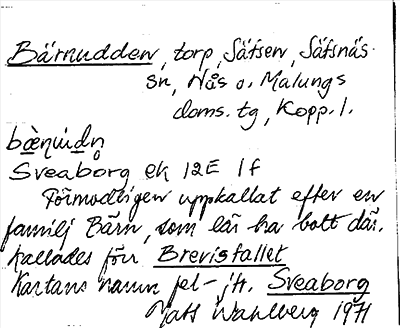 Bärnudden, torp, Säfsen, Säfsnäs
sn, Nås o. Malungs
doms. tg, Kopp. l.
bæ̀ṇudn
Sveaborg ek 12E 1f
Förmodligen uppkallat efter en
familj Bärn, som lär ha bott där.
Kallades förr Brevisfallet
Kartans namn fel – jfr. Sveaborg
Mats Wahlberg 1971